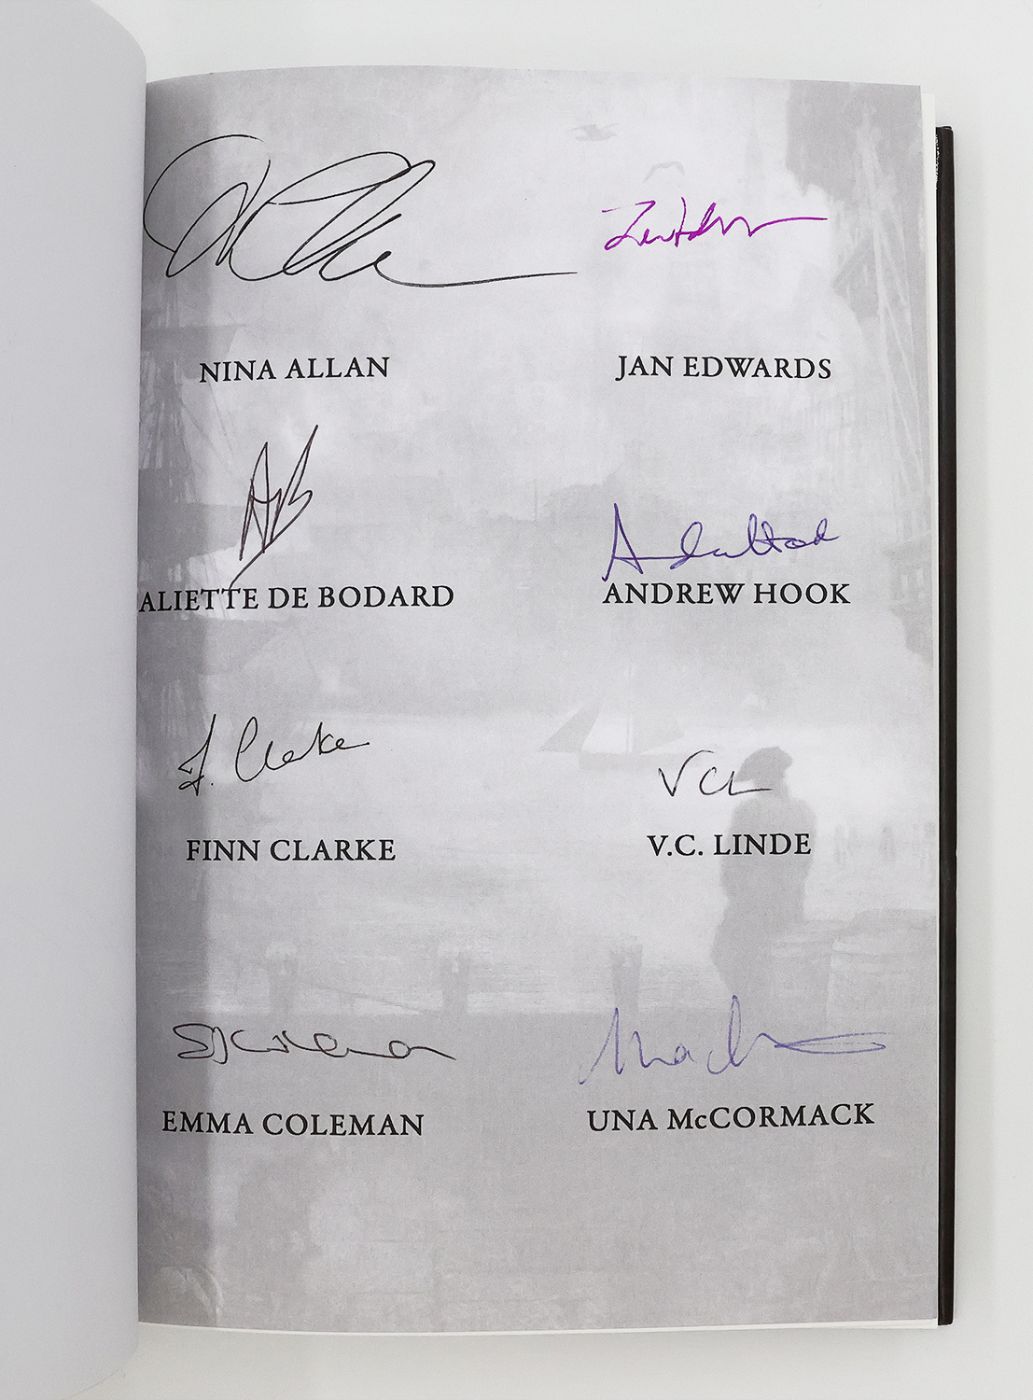 NINA ALLAN
JAN EDWARDS
ALIETTE DE BODARD
ANDREW HOOK
J. Clarke
FINN CLARKE
VCL
V.C. LINDE
EMMA COLEMAN
UNA McCORMACK